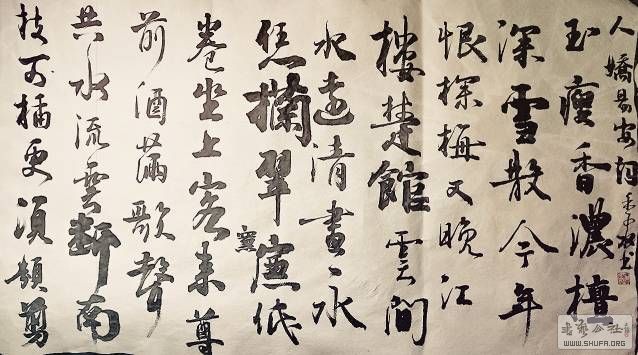 人嬌易安詞
玉瘦香濃檀
深雪散今年
恨探梅又晚江
樓楚館雲間
水遠清晝永
凭攔翠簾低
卷坐上客来尊
前酒滿歌聲
共水流雲斷南
枝可插更須頻剪
WWW.SHUFA.ORG